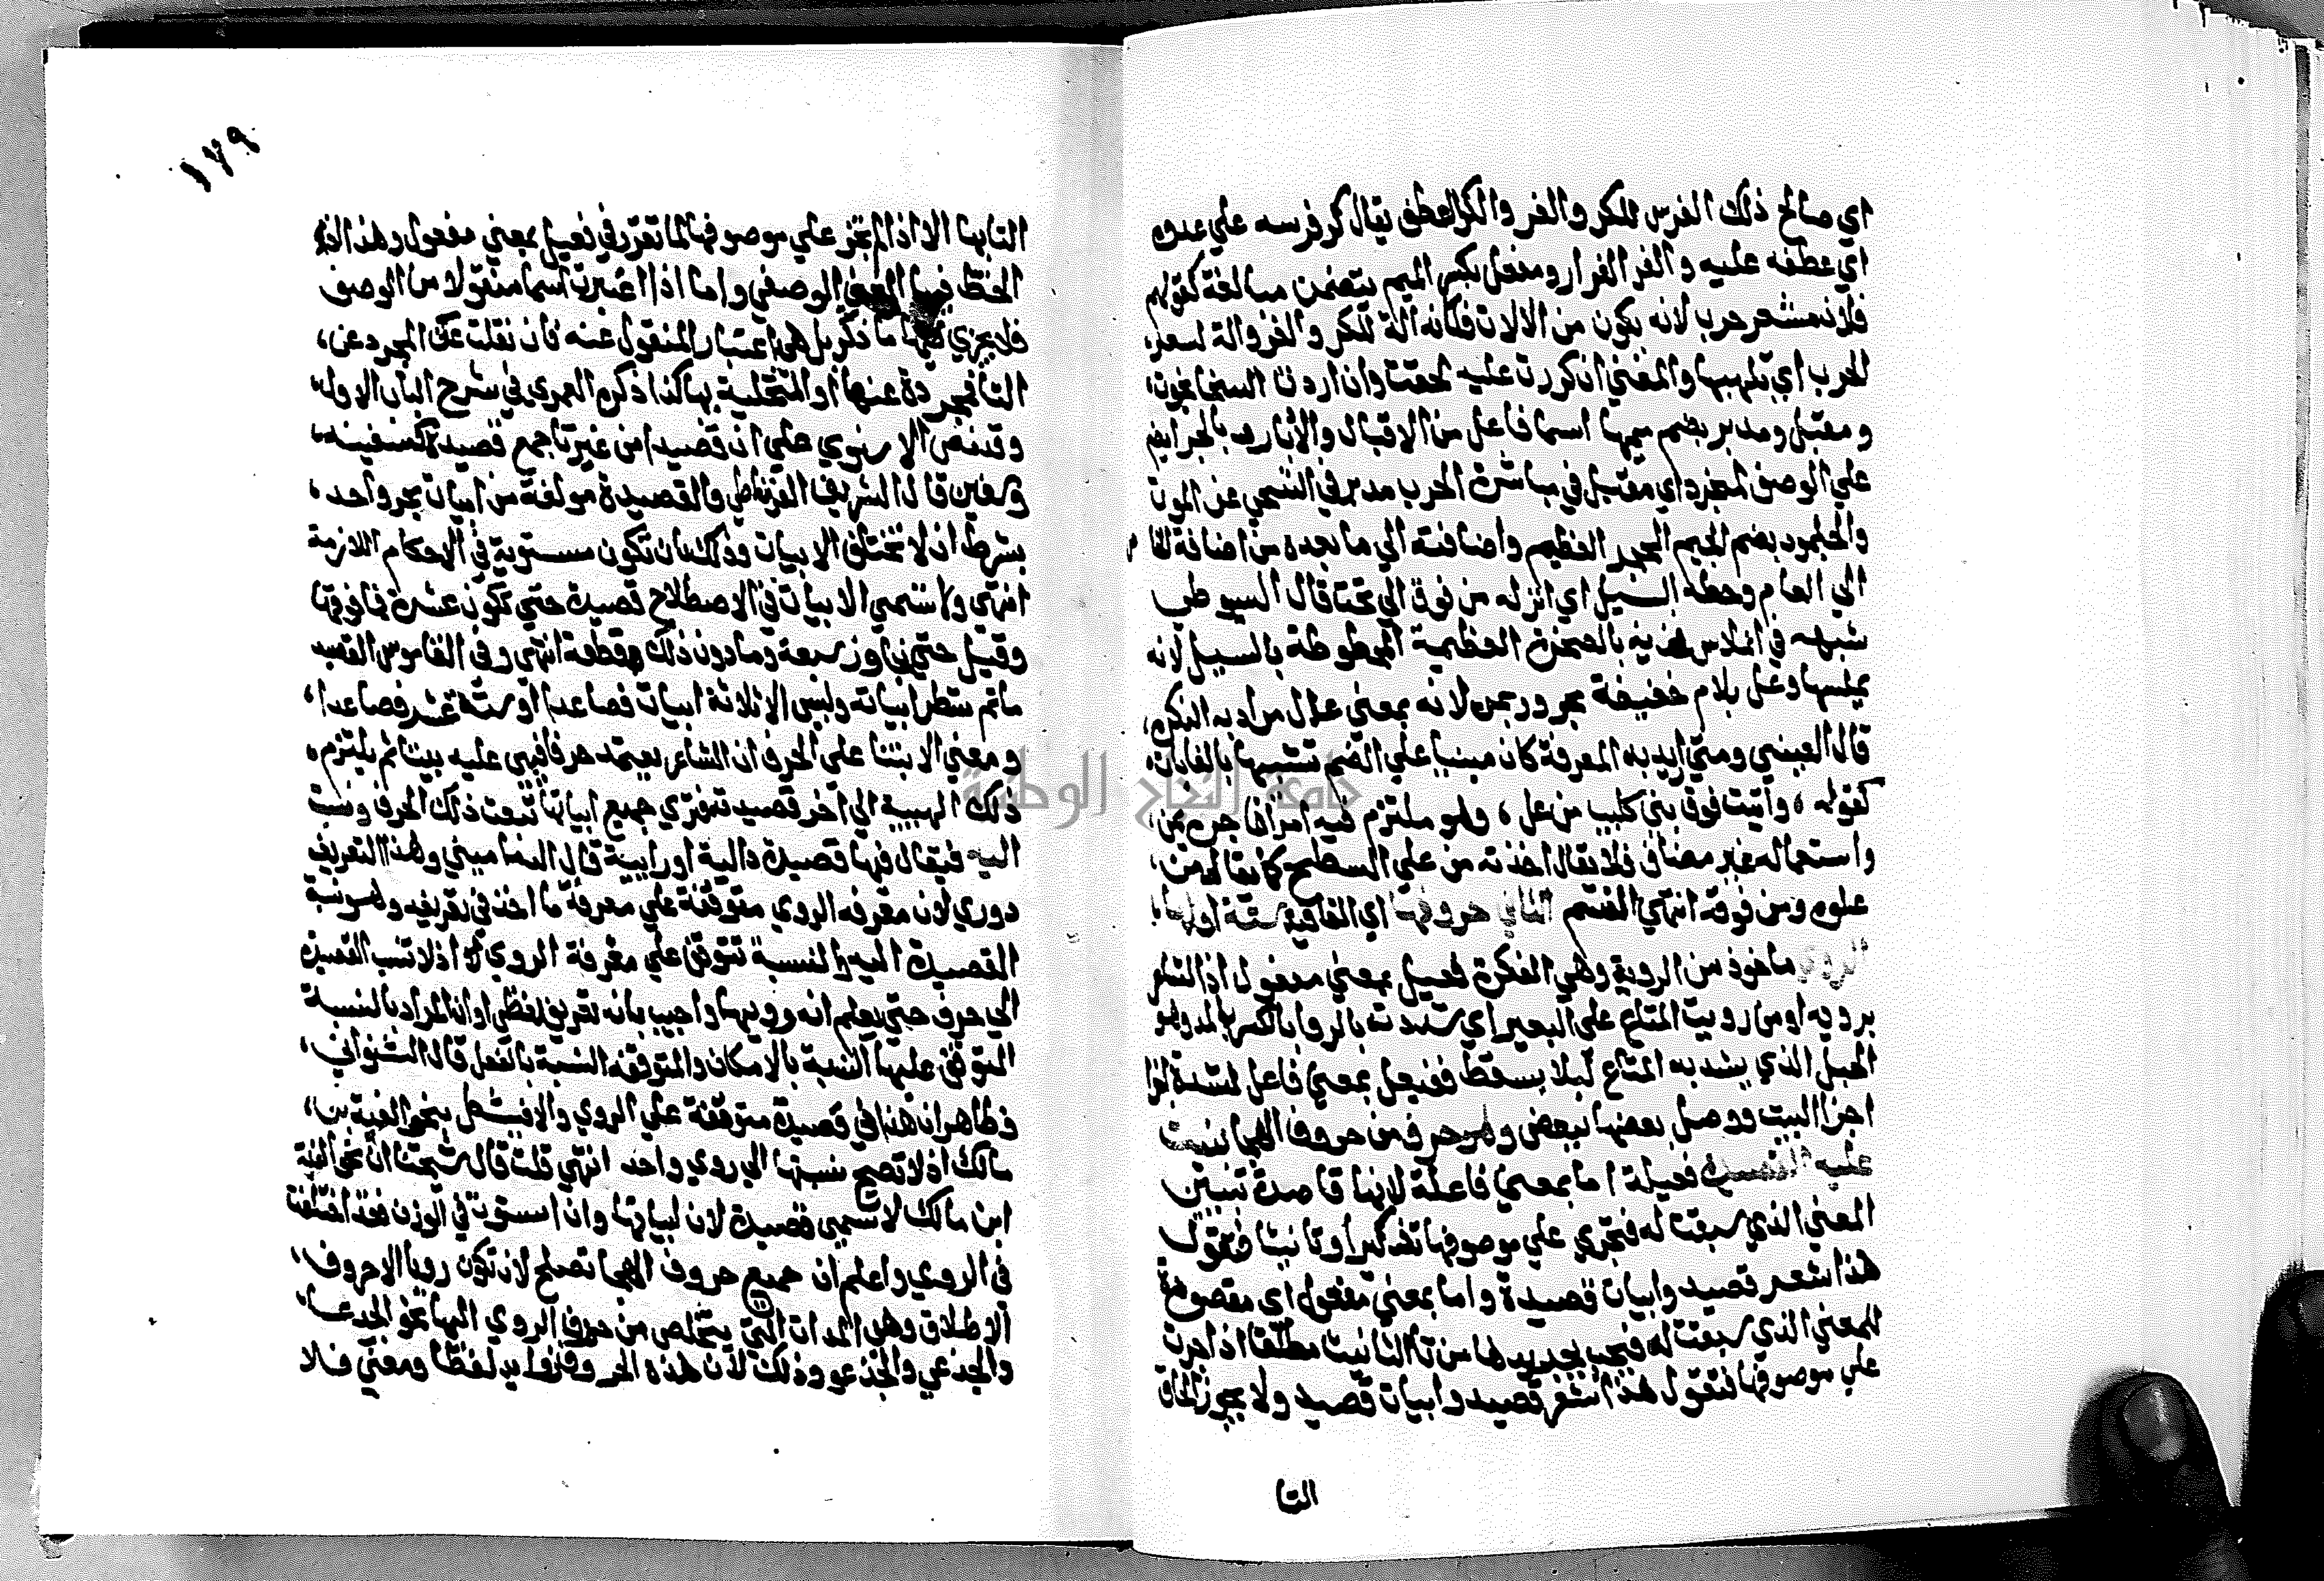 اي صالح ذلك الفرس للكر والفر والكر العطف يقال كر فرسه علي عدوه
اي عطفه عليه والفر الفرار ومفعل بكسر الميم يتضمن مبالغة كقولهم
فلان مسعر حرب لانه يكون من الالات فكانه الة للكر والفر والة لسعر
الحرب اي يلهبها والمعني ان كررت عليه لحقت وان اردت
ومقبل ومدبر بضم ميمها اسما فاعل من الاقبال والادبار بالجر ايضا
علي الوصف لمنجرد اي مقبل في مباشرة الحرب مدبر في عن الموت
والجلمود بضم الجيم الحجر العظيم واضافته الي ما بعده من اضافة الخاص
الي العام وحطه السيل اي انزله من فوق الي تحت قال السيوطي
شبهه في بالصخرة العظيمة المحطوطة بالسيل لانه
يملسها وعل بلام خفيفة مجرور بمن لانه بمعني عال مراد به النكرة
قال العيني ومتي اريد به المعرفة كان مبنيا علي الضم تشبيها بالغايات
كقوله ، واتيت فوق بني كليب من عل ، وهو ملتزم فيه امران جره بمن
واستعماله غير مضاف فلا يقال اخذته من علي السطح كما يقال من
علوه ومن فوقه انتهي القسم الثاني حروفها اي القافية ستة اولها
الروي ماخوذ من الروية وهي الفكرة فعيل بمعني مفعول اذ الشاعر
يرويه او من رويت المتاع علي البعير اي شددته بالروا بالكسر والمد وهو
الحبل الذي يشد به المتاع ليلا يسقط ففعيل بمعني فاعل لشدة
اجزا البيت ووصل بعضها ببعض وهو حرف من حروف الهجا بنيت
عليه القصيدة فعيلة اما بمعني فاعلة لانها قاصدة تبيين
المعني الذي سيقت له فتجري علي موصوفها تذكيرا وتانيثا فتقول
هذا شعر قصيد وابيات قصيدة واما بمعني مفعول اي مقصودة
للمعني الذي سيقت له فيجب تجريدها من تا التانيث مطلقا اذا جرت
علي موصوفها فتقول هذا شعر قصيد وابيات قصيد ولا يجوز الحاق
التا
١٧٩
التابها الا اذا لم تجر علي موصوفها لما تقرر في فعيل بمعني مفعول وهذا اذا
لحظ فيها المعني الوصفي واما اذا اعتبرت اسما منقولا من الوصف
فلا يجري فيها ما ذكر بل هي اعتبار المنقول عنه فان نقلت عن المجرد عن
التا فمجردة عنها او المتحلية بها كذا ذكره العمري في شرح البيان الاول
وقد نص الاسنوي علي ان قصيدا من غير تا جمع قصيدة كسفينة
وسفين قال الشريف الغرناطي والقصيدة مولفة من ابيات بحر واحد
بشرط ان لا تختلف الابيات وذلك بان تكون مستوية في الاحكام اللازمة
انتهي ولا تسمي الابيات في الاصطلاح قصيدة حتي تكون عشرة فما فوقها
وقيل حتي تجاوز سبعة وما دون ذلك قطعة انتهي وفي القاموس القصيد
ما تم شطر ابياته وليس الا ثلاثة ابيات فصاعدا او ستة عشر فصاعدا
ومعني الابتنا علي الحرف ان الشاعر يعتمد حرفا فيبني عليه بيتا ثم يلتزم
ذلك الي اخر قصيدته فتري جميع ابياتها تبعت ذلك الحرف ونسبت
اليه فيقال فيها قصيدة دالية او رايية قال الدماميني وهذا التعريف
دوري لان معرفة الروي متوقفة علي معرفة ما اخذ في تعريفه وهو نسبة
القصيدة اليه والنسبة تتوقف علي معرفة الروي اذ لا تنسب القصيدة
الي حرف حتي يعلم انه رويها واجيب بانه تعريف لفظي او ان المراد بالنسبة
المتوقف عليها النسبة بالامكان والمتوقفة النسبة بالفعل قال الشنواني
وظاهر ان هذا في قصيدة متوقفة علي الروي والا فيشكل بنحو الفية بن
مالك اذ لا تصح نسبتها الي روي واحد انتهي قلت قال شيخنا ان نحو الفية
ابن مالك لا تسمي قصيدة لان ابياتها وان استوت في الوزن فقد اختلفت
في الروي واعلم ان جميع حروف الهجا تصلح لان تكون رويا الا حروف
الاطلاق وهي المدات التي يتخلص من حرف الروي اليها نحو الجدعا
والجذعي والجذعو وذلك لان هذه الحروف زوايد لفظا ومعني فلا